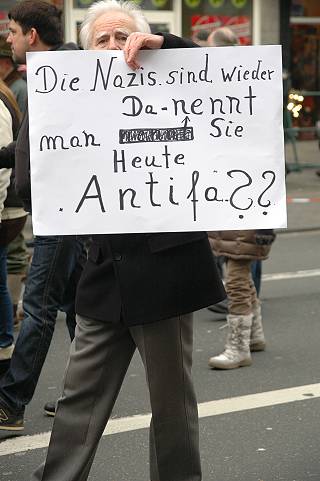 Die Nazis sind wieder
Da-nennt
man Sie
Heute
Antifa??